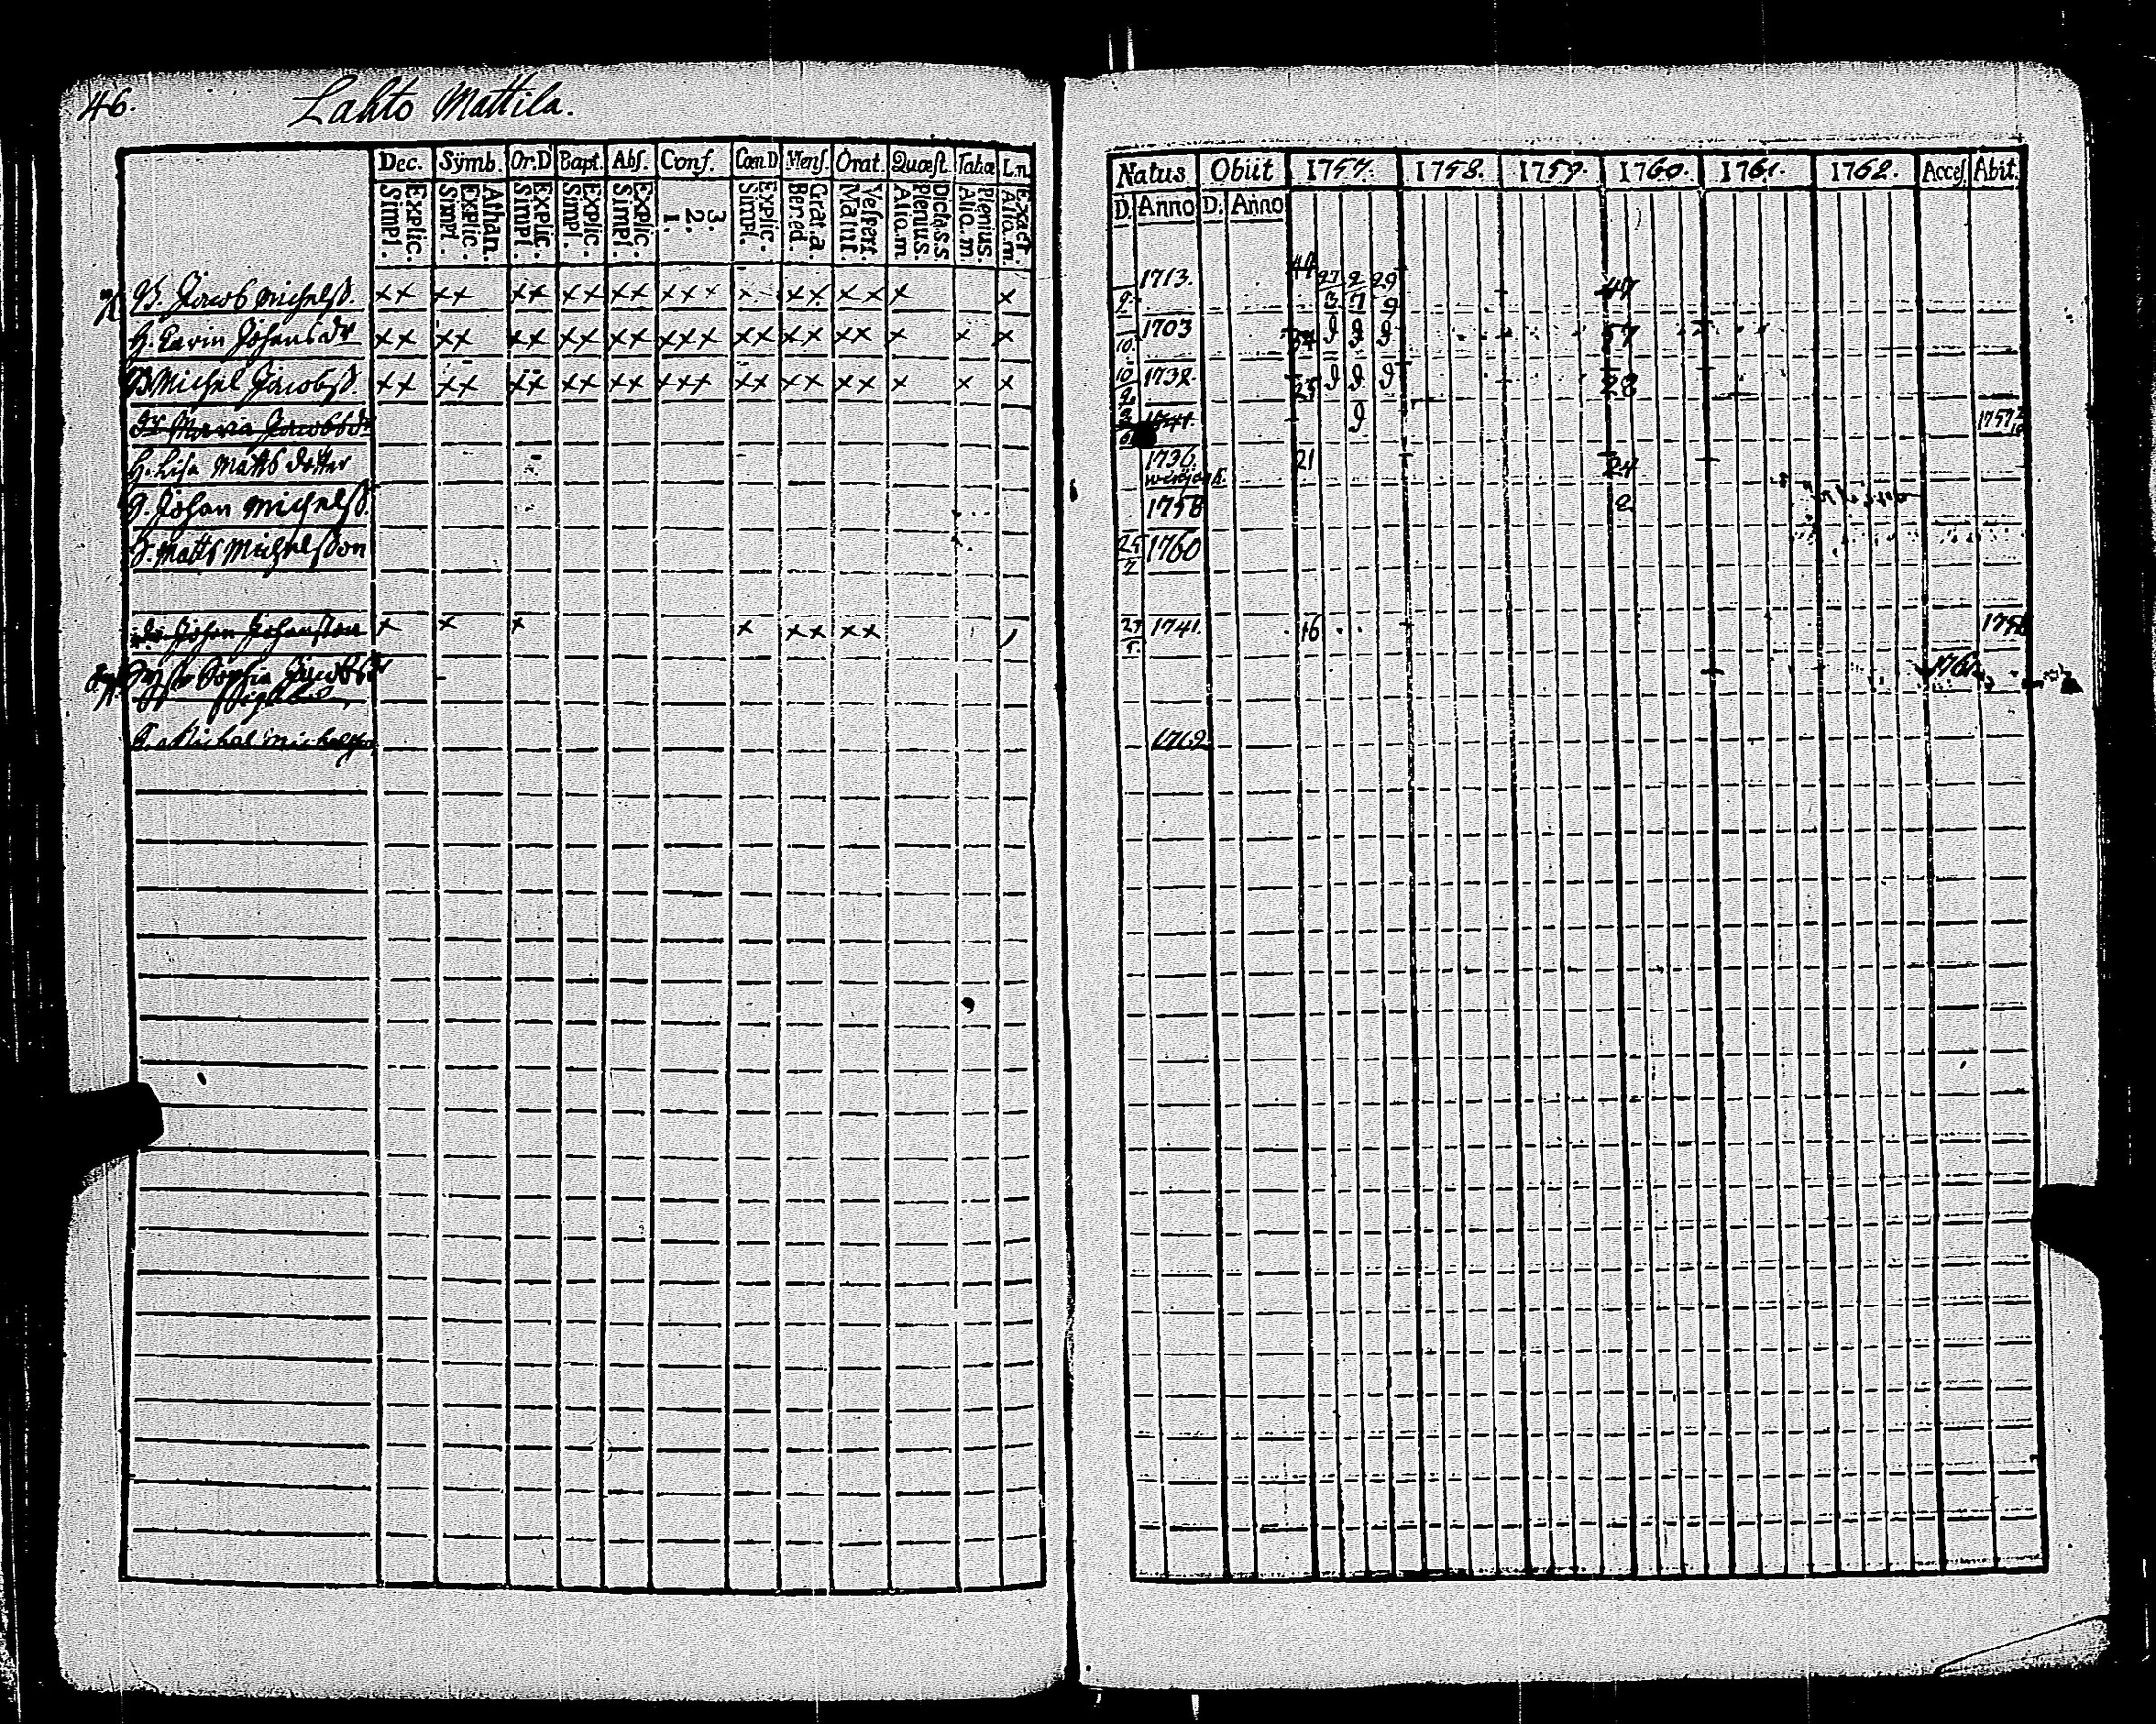 46.
Lahto Mattila.
Dec. Symb. Or.D Bapt. Abs. Conf. Cœn D Mens. Orat. Quæst. Tabæ L.n.
Explic. Simpl. Athan. Explic. Simpl. Explic. Simpl. Explic. Simpl. Explic. Simpl. 3. 2. 1. Explic. Simpl. Grat.a. Bered. Vespert. Matut. Dicta.s.s. Plenius. Alio.m Plenius. Alio.m. Exact. Alio.m
Natus Obiit 1757. 1758. 1759. 1760. 1761. 1762. Acces. Abit.
D. Anno D. Anno
B. Jacob Michelss. xx xx xx xx xx xxx x xx xx x x 9 1713. 44 27/3 2/7 29/9 47
H. Carin Johansdr xx xx xx xx xx xxx xx xx xx x x x 10 1703 54 57
B Michel Jacobss. xx xx xx xx xx xxx xx xx xx x x x 10/9 1732. 25 28
dr Maria Jacobsdr 1757
H. Lisa Matts dotter 1736. 21 24
S. Johan Michelss. 1758 2
S. Matts Michelsson 25/7 1760
Johan Johansson x x x x xx xx 1741. 16
Sophia Jacobsdr 1761
S. Michel Michelsson 1762